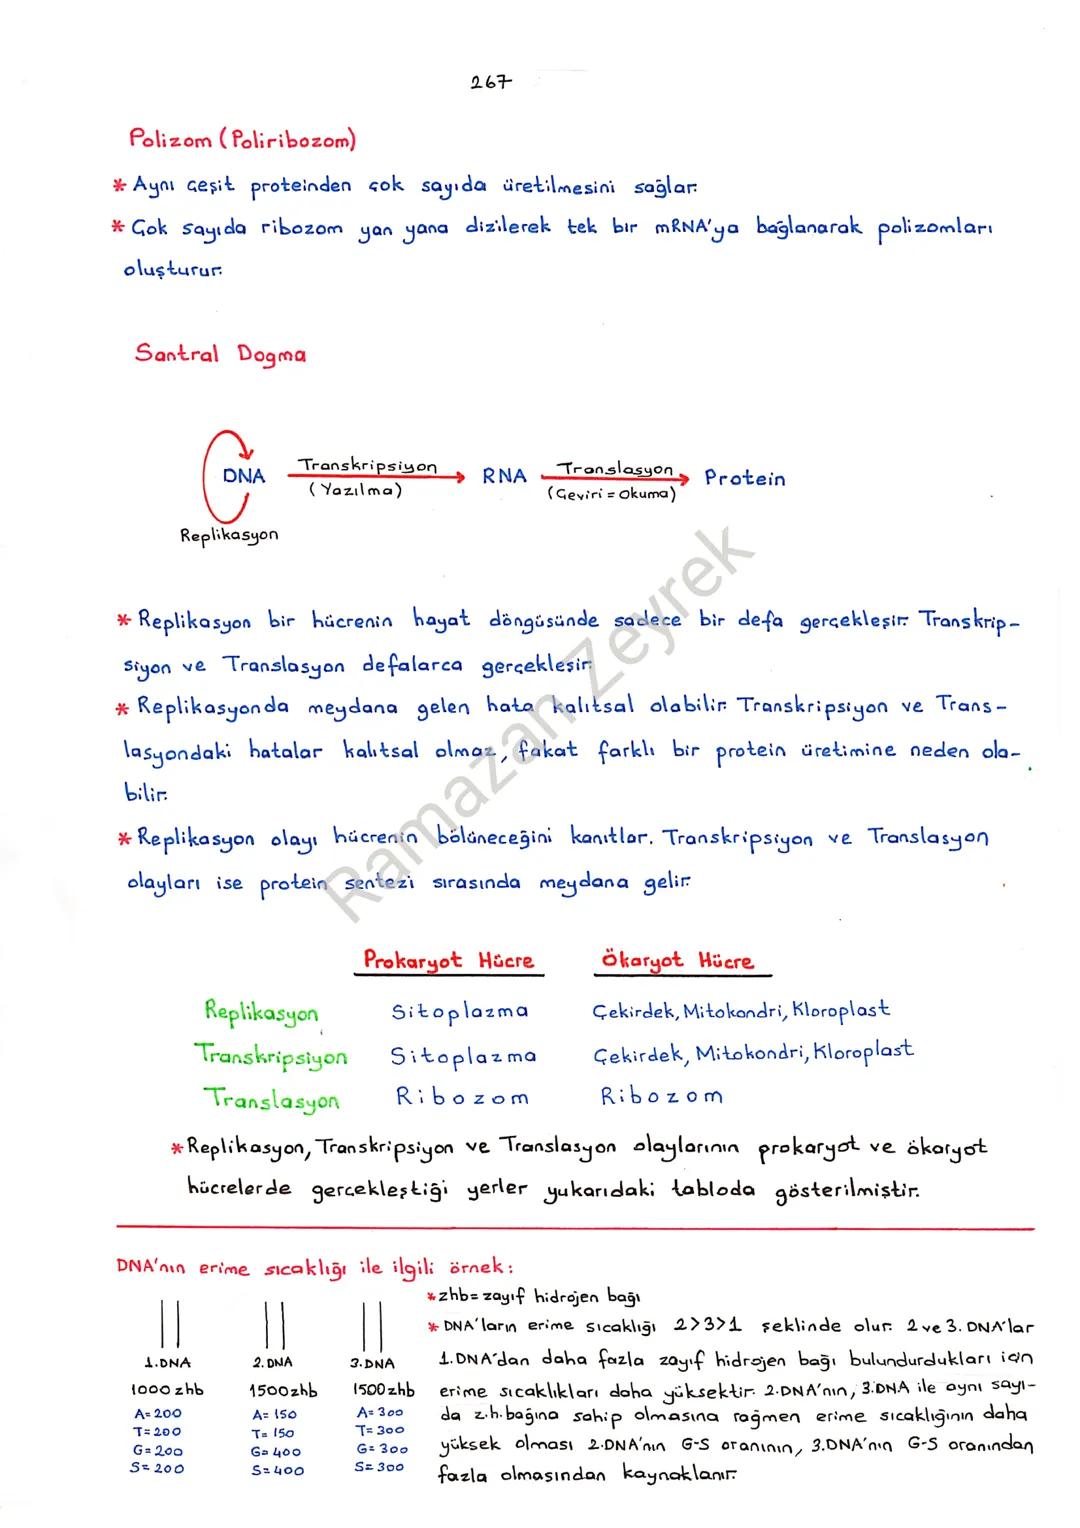 267
Polizom (Poliribozom)
* Aynı çeşit proteinden çok sayıda üretilmesini sağlar.
* Çok sayıda ribozom yan yana dizilerek tek bir mRNA'ya bağlanarak polizomları
oluşturur.
Santral Dogma
DNA Transkripsiyon (Yazılma) RNA Translasyon (Çeviri = Okuma) Protein
Replikasyon
* Replikasyon bir hücrenin hayat döngüsünde sadece bir defa gerçekleşir. Transkrip-
siyon ve Translasyon defalarca gerçekleşir.
* Replikasyonda meydana gelen hata kalıtsal olabilir. Transkripsiyon ve Trans-
lasyondaki hatalar kalıtsal olmaz, fakat farklı bir protein üretimine neden ola-
bilir.
* Replikasyon olayı hücrenin bölüneceğini kanıtlar. Transkripsiyon ve Translasyon
olayları ise protein sentezi sırasında meydana gelir.
Ramazan Zeyrek
Prokaryot Hücre Ökaryot Hücre
Replikasyon Sitoplazma Çekirdek, Mitokondri, Kloroplast
Transkripsiyon Sitoplazma Çekirdek, Mitokondri, Kloroplast
Translasyon Ribozom Ribozom
* Replikasyon, Transkripsiyon ve Translasyon olaylarının prokaryot ve ökaryot
hücrelerde gerçekleştiği yerler yukarıdaki tabloda gösterilmiştir.
DNA'nın erime sıcaklığı ile ilgili örnek:
1.DNA
1000 zhb
A=200
T=200
G=200
S=200
2. DNA
1500zhb
A=150
T=150
G=400
S=400
3.DNA
1500zhb
A=300
T=300
G=300
S=300
* zhb= zayıf hidrojen bağı
* DNA'ların erime sıcaklığı 2>3>1 şeklinde olur. 2 ve 3. DNA'lar
1.DNA'dan daha fazla zayıf hidrojen bağı bulundurdukları için
erime sıcaklıkları daha yüksektir. 2.DNA'nın, 3.DNA ile aynı sayı-
da z.h.bağına sahip olmasına rağmen erime sıcaklığının daha
yüksek olması 2.DNA'nın G-S oranının, 3.DNA'nın G-S oranından
fazla olmasından kaynaklanır.